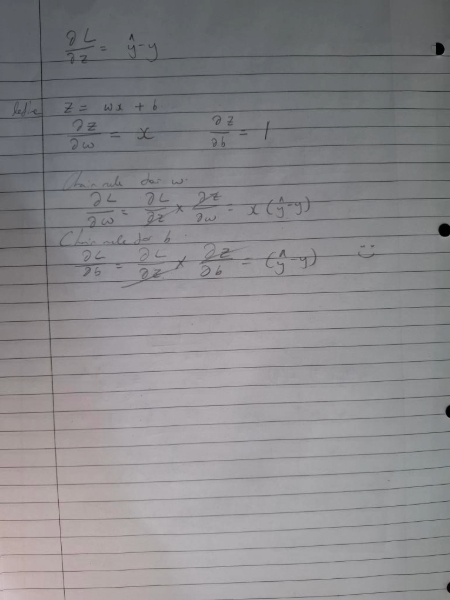 ∂L/∂z = ŷ-y
z = wx + b
∂z/∂w = x ∂z/∂b = 1
Chain rule for w.
∂L/∂w = ∂L/∂z × ∂z/∂w = x(ŷ-y)
Chain rule for b.
∂L/∂b = ∂L/∂z × ∂z/∂b = (ŷ-y) :)